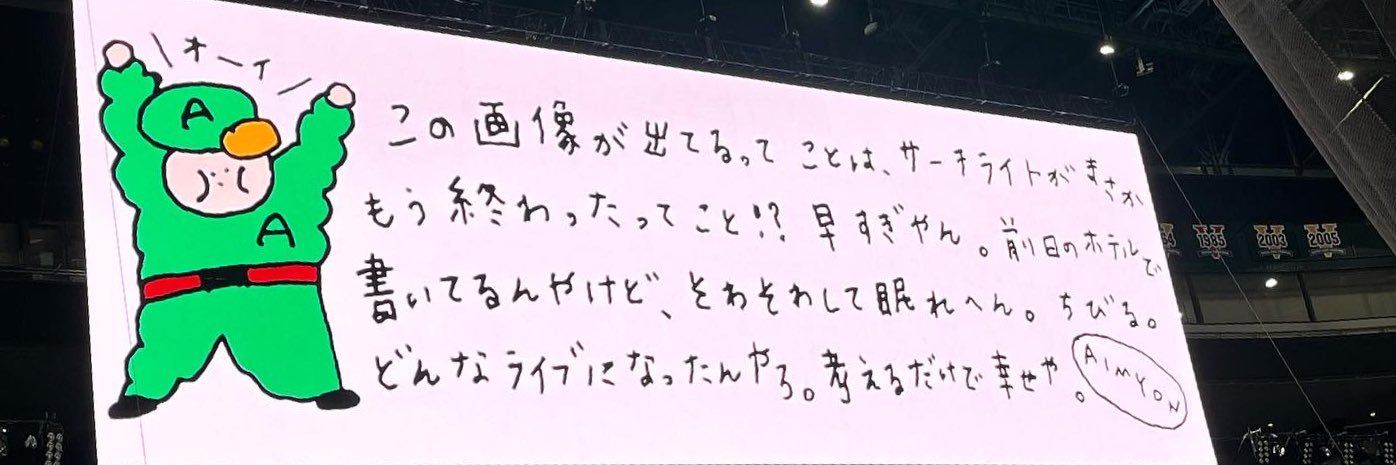 オーイ
A
A
この画像が出てるってことは、サーチライトがまさか
もう終わったってこと!? 早すぎやん。前日のホテルで
書いてるんやけど、そわそわして眠れへん。ちびる。
どんなライブになったんやろ。考えるだけで幸せや。
AIMYON
1985
2003
2005